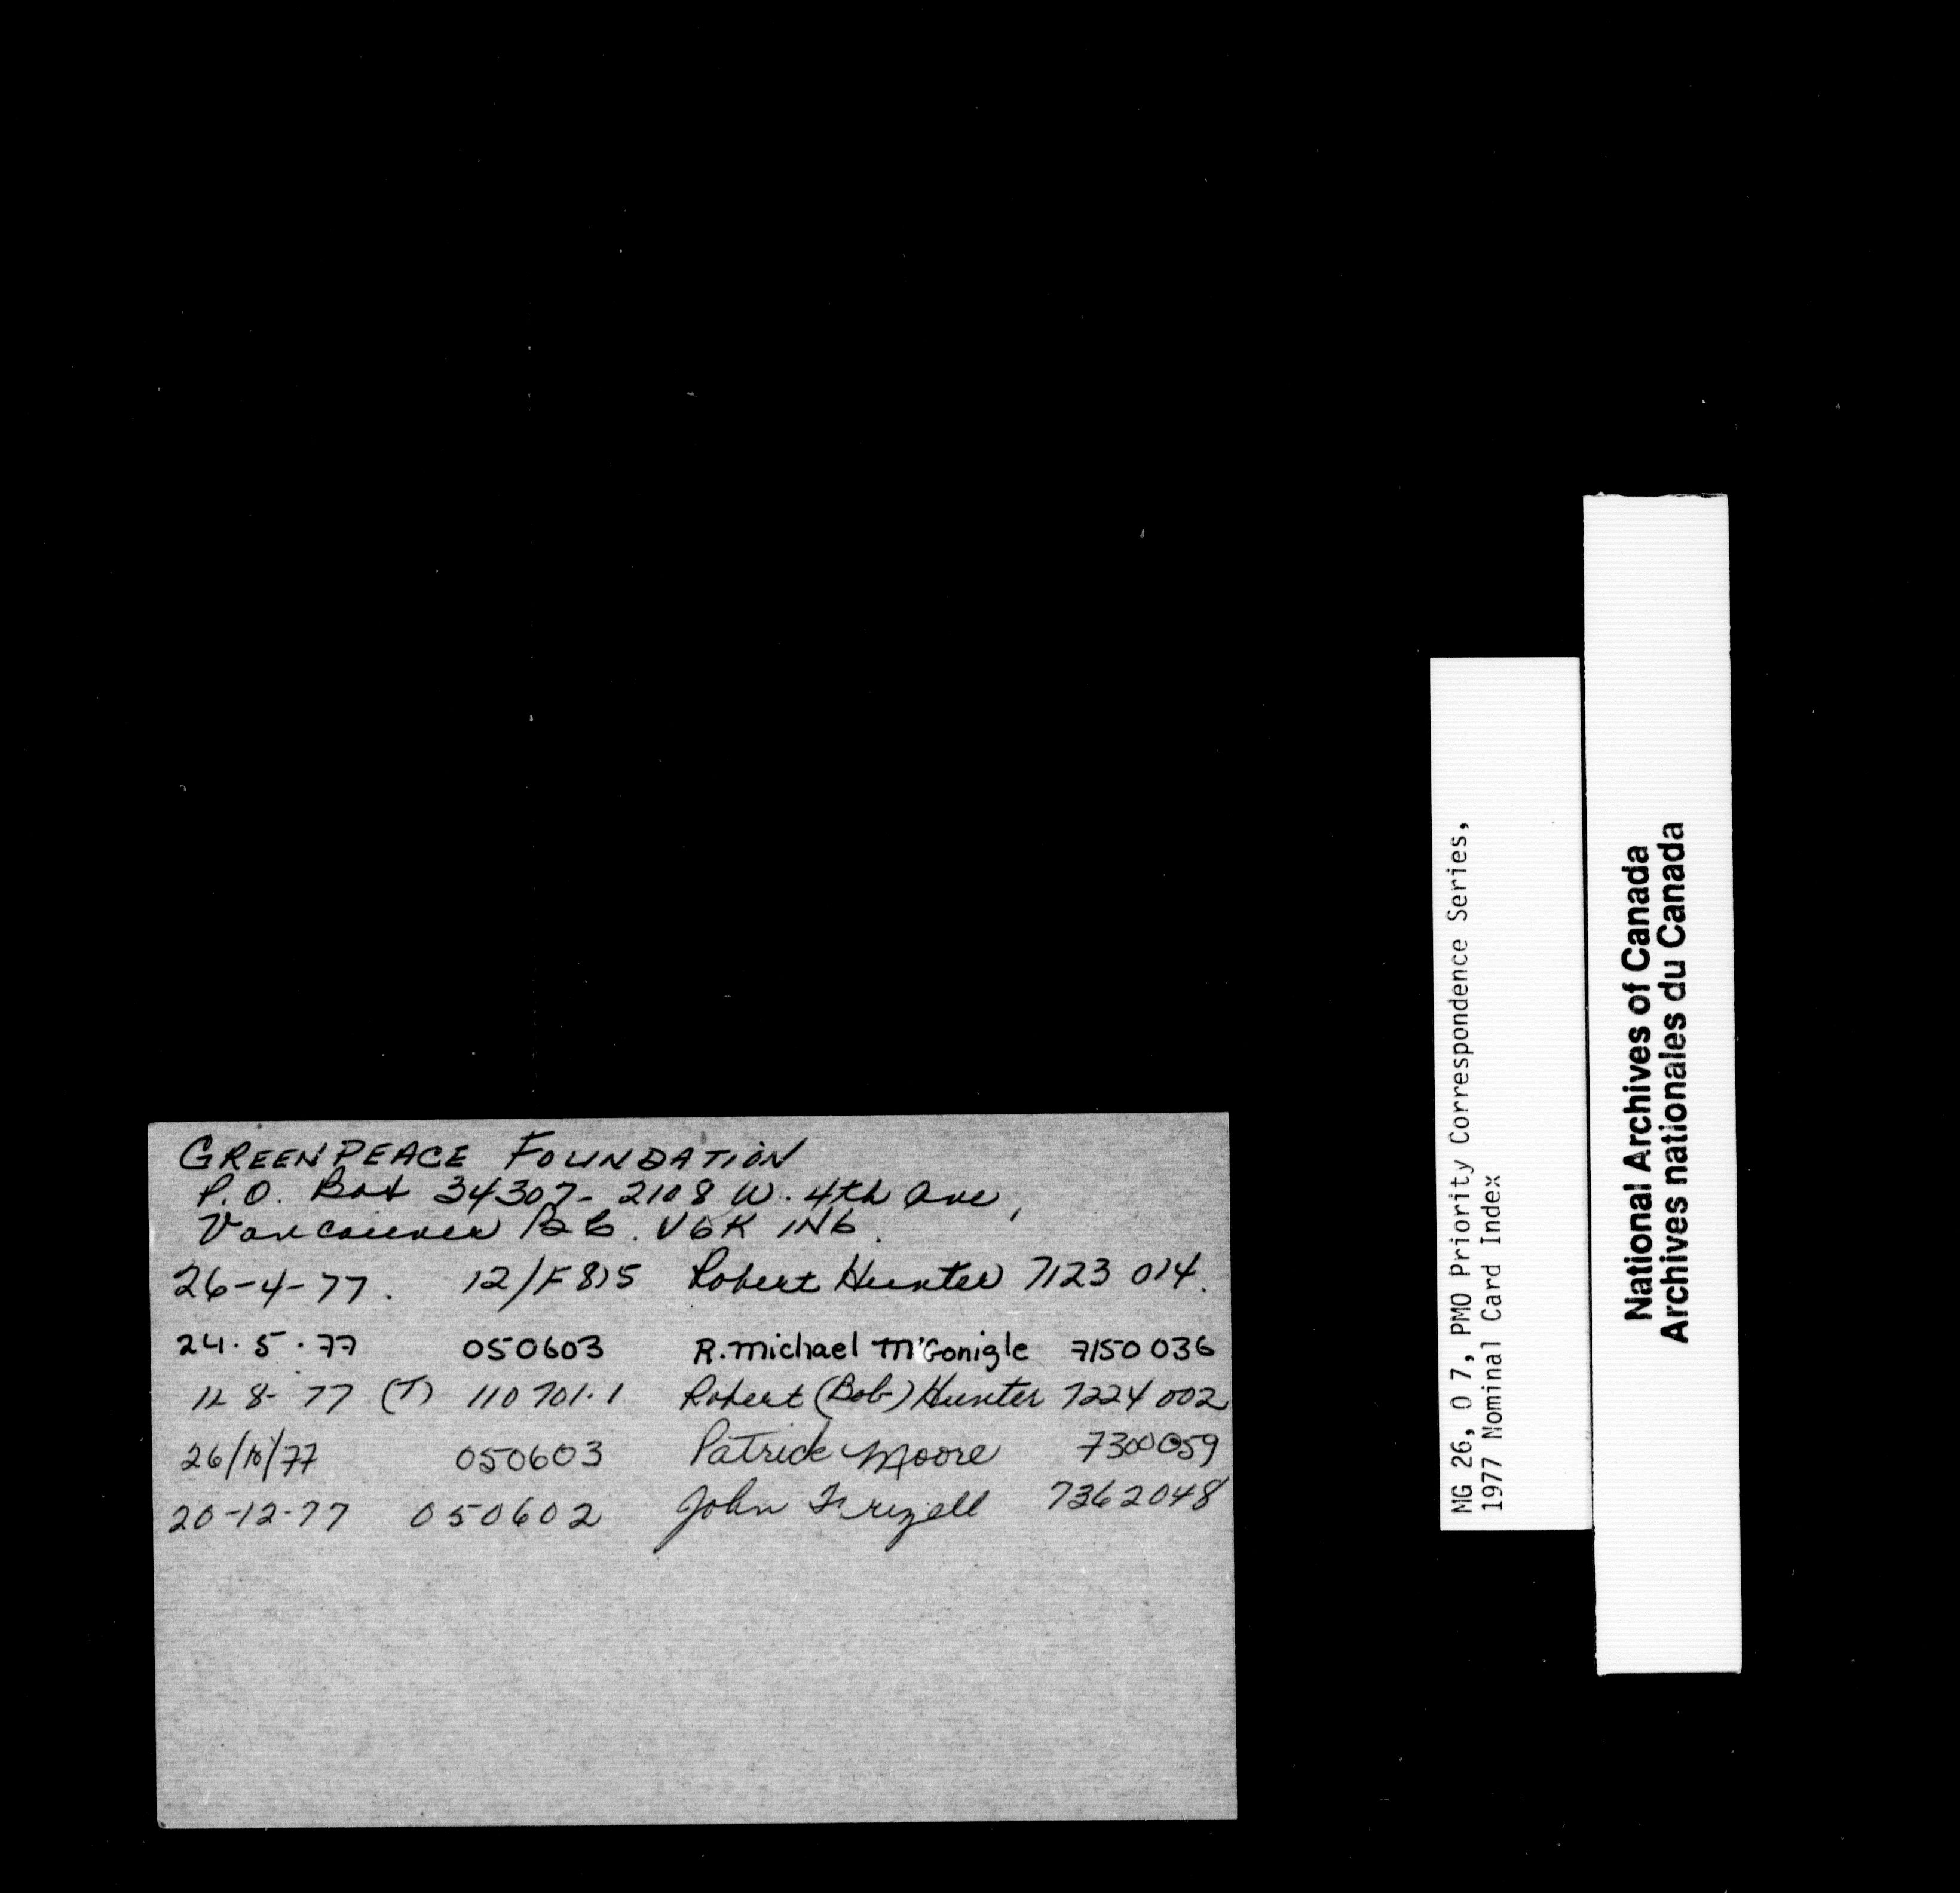 GREENPEACE FOUNDATION
P.O. Box 34307- 2108 W. 4th Ave,
Vancouver BC. V6K 1N6.
26-4-77. 12/F815 Robert Hunter 7123 014.
24.5.77 050603 R. Michael McGonigle 7150 036
12 8- 77 (T) 110701.1 Robert (Bob) Hunter 7224 002
26/10/77 050603 Patrick Moore 7300059
20-12-77 050602 John Frizell 7362048
MG 26, O 7, PMO Priority Correspondence Series,
1977 Nominal Card Index
National Archives of Canada
Archives nationales du Canada